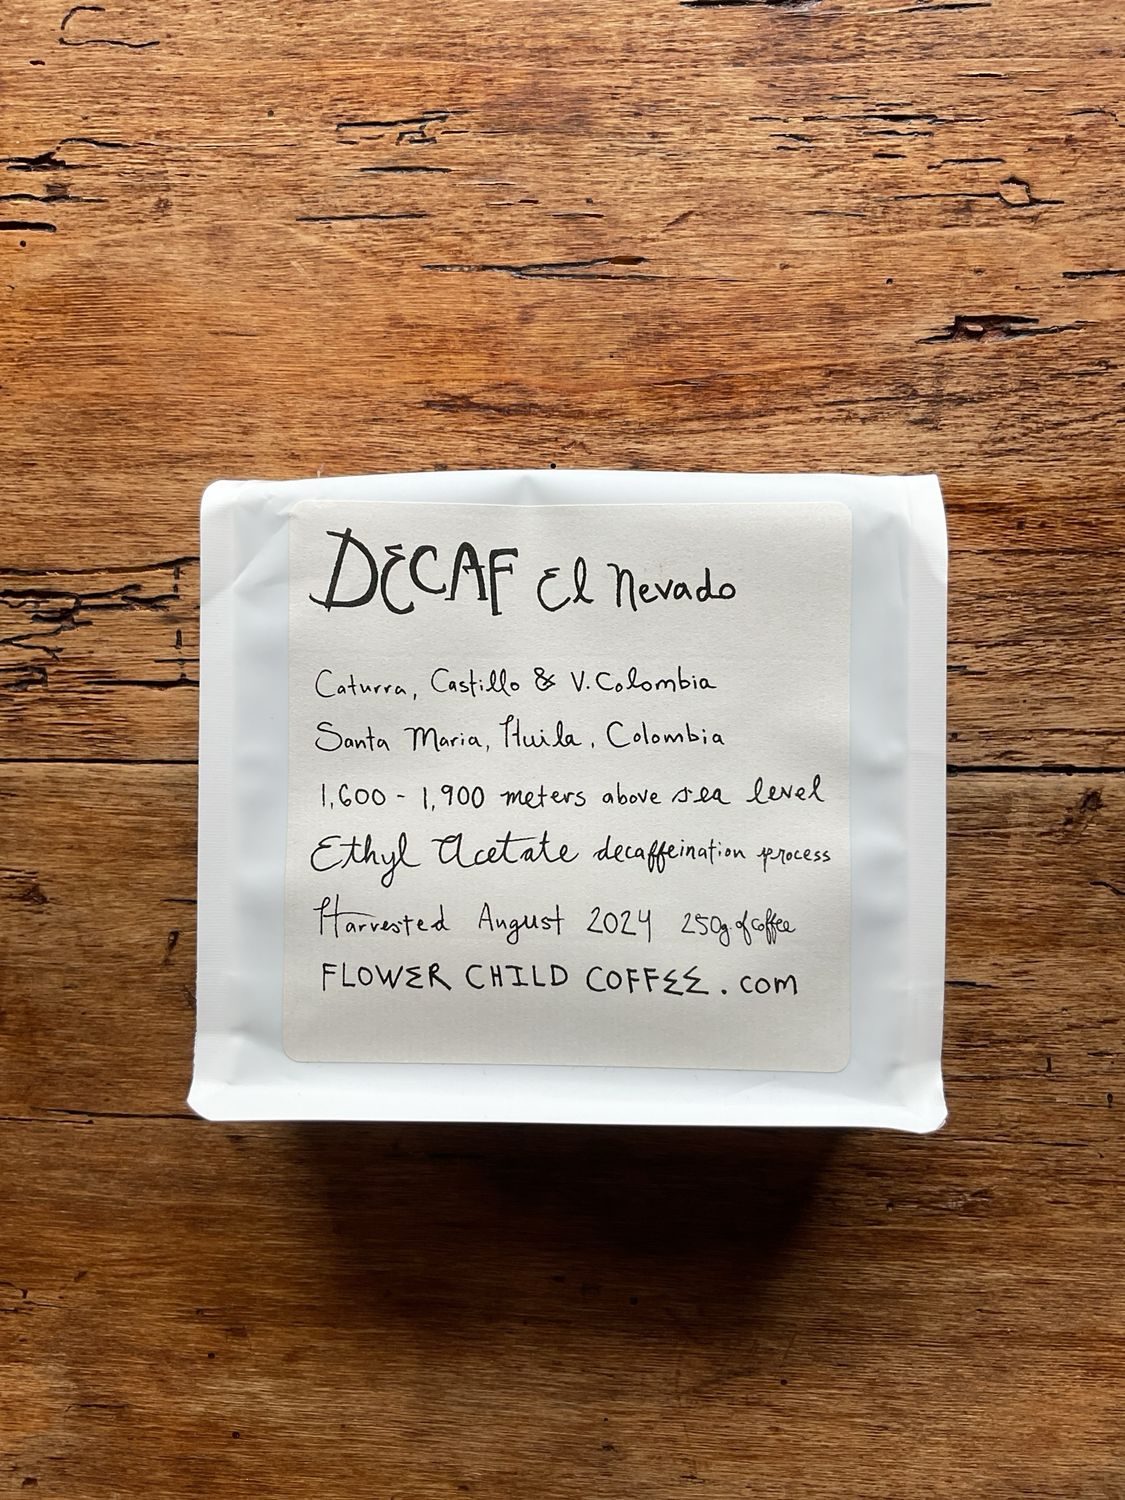 DECAF El Nevado
Caturra, Castillo & V. Colombia
Santa Maria, Huila, Colombia
1,600 - 1,900 meters above sea level
Ethyl Acetate decaffeination process
Harvested August 2024 250g of coffee
FLOWER CHILD COFFEE.com